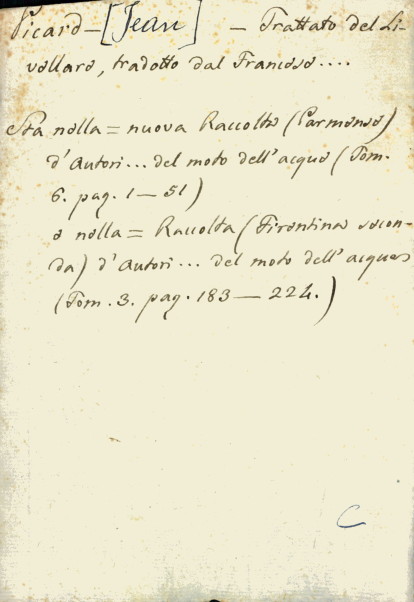 Picard – [Jean] – Trattato del Li-
vellare, tradotto dal Francese....
Sta nella = nuova Raccolta (Parmense)
d'Autori... del moto dell'acque (Tom.
6. pag. 1 – 51)
e nella = Raccolta (Fiorentina secon-
da) d'Autori... del moto dell'acque
(Tom. 3. pag. 183 – 224.)
C